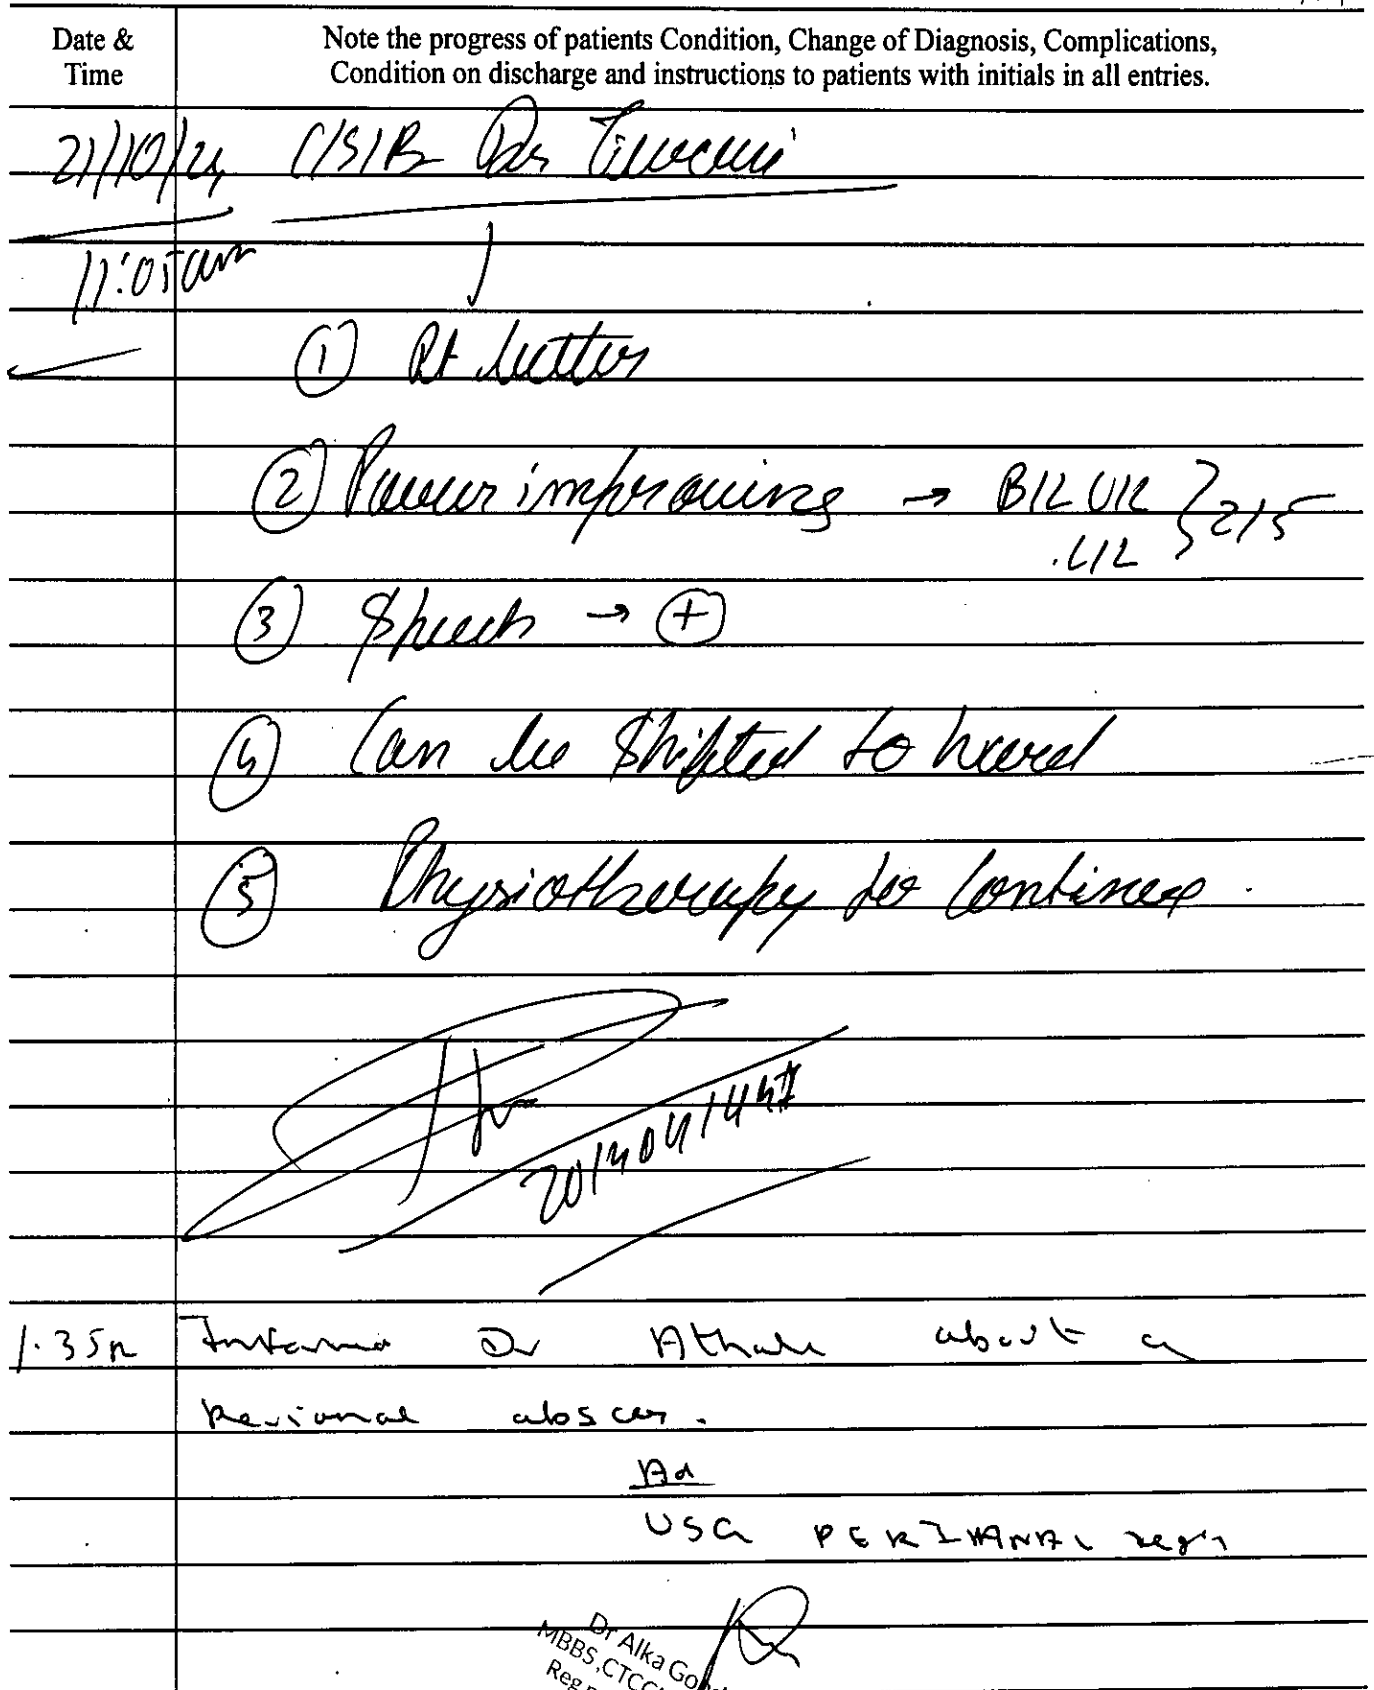 Date & Time
Note the progress of patients Condition, Change of Diagnosis, Complications,
Condition on discharge and instructions to patients with initials in all entries.
21/10/24 C/S/B Dr
11:05am
① Pt better
② Power improving → B/L U/L } 2/5
L/L
③ Speech → ⊕
④ Can be shifted to ward
⑤ Physiotherapy to continue.
1.35p Informed Dr about a
Perianal abscess.
Ad
USG PERIANAL region
Dr Alka
MBBS,
Reg